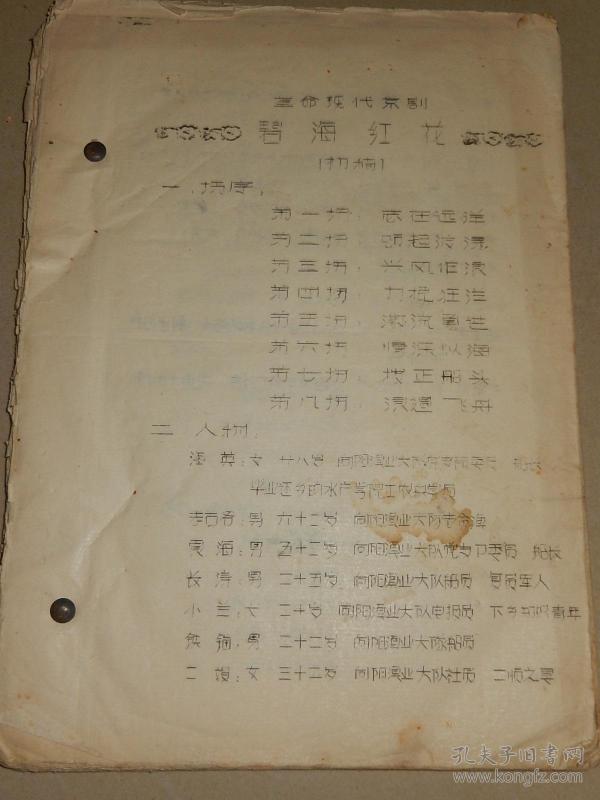 革命现代京剧
碧海红花
(初稿)
一、场序:
第一场:志在远洋
第二场:乍起波浪
第三场:兴风作浪
第四场:力挽狂
第五场:激流勇进
第六场:情深似海
第七场:拨正船头
第八场:浪遏飞舟
二、人物:
英:女 十八岁 向阳渔业大队 船长
毕业返乡的水产学院工农兵学员
李石爷:男 六十二岁 向阳渔业大队老渔海
震海:男 五十三岁 向阳渔业大队党支卫委员 船长
长涛:男 二十五岁 向阳渔业大队船员 复员军人
小兰:女 二十岁 向阳渔业大队电报员 下乡知识青年
铁锚:男 二十二岁 向阳渔业大队船员
二嫂:女 三十二岁 向阳渔业大队社员 二顺之妻
孔夫子旧书网
www.kongfz.com